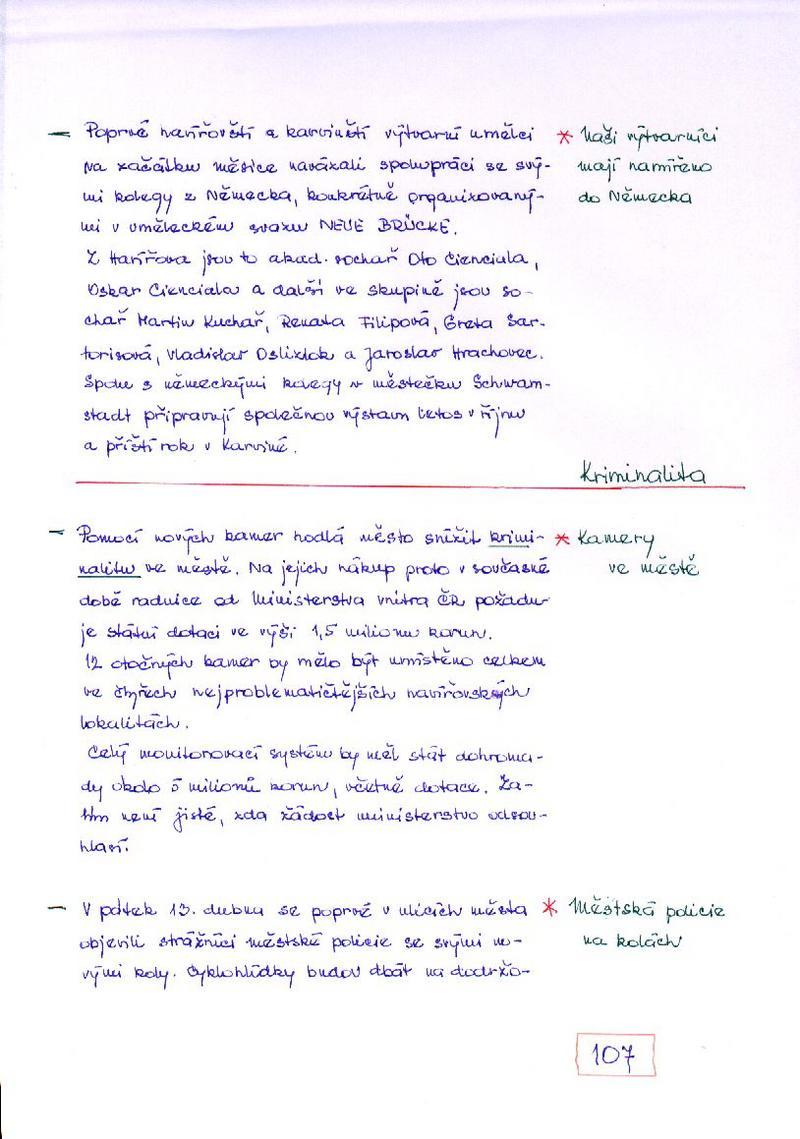 — Poprvé havířovští a karvinští výtvarní umělci * Naši výtvarníci
na začátku měsíce navázali spolupráci se svý- mají namířeno
mi kolegy z Německa, konkrétně organizovaný- do Německa
mi v uměleckém svazu NEUE BRÜCKE.
Z Havířova jsou to akad. sochař Oto Cienciala,
Oskar Cienciala a další ve skupině jsou so-
chař Martin Kuchař, Renata Filipová, Greta Sar-
torisová, Vladislav Oslizlok a Jaroslav Hrachovec.
Spolu s německými kolegy v městečku Schwam-
stadt připravují společnou výstavu letos v říjnu
a příští rok v Karviné.
Kriminalita
— Pomocí nových kamer hodlá město snížit krimi- * Kamery
nalitu ve městě. Na jejich nákup proto v současné ve městě
době radnice od Ministerstva vnitra ČR požadu-
je státní dotaci ve výši 1,5 milionu korun.
12 otočných kamer by mělo být umístěno celkem
ve čtyřech nejproblematičtějších havířovských
lokalitách.
Celý monitorovací systém by měl stát dohroma-
dy okolo 5 milionů korun, včetně dotace. Za-
tím není jisté, zda žádost ministerstvo odsou-
hlasí.
— V pátek 13. dubna se poprvé v ulicích města * Městská policie
objevili strážníci městské policie se svými no- na kolách
vými koly. Cyklohlídky budou dbát na dodržo-
107